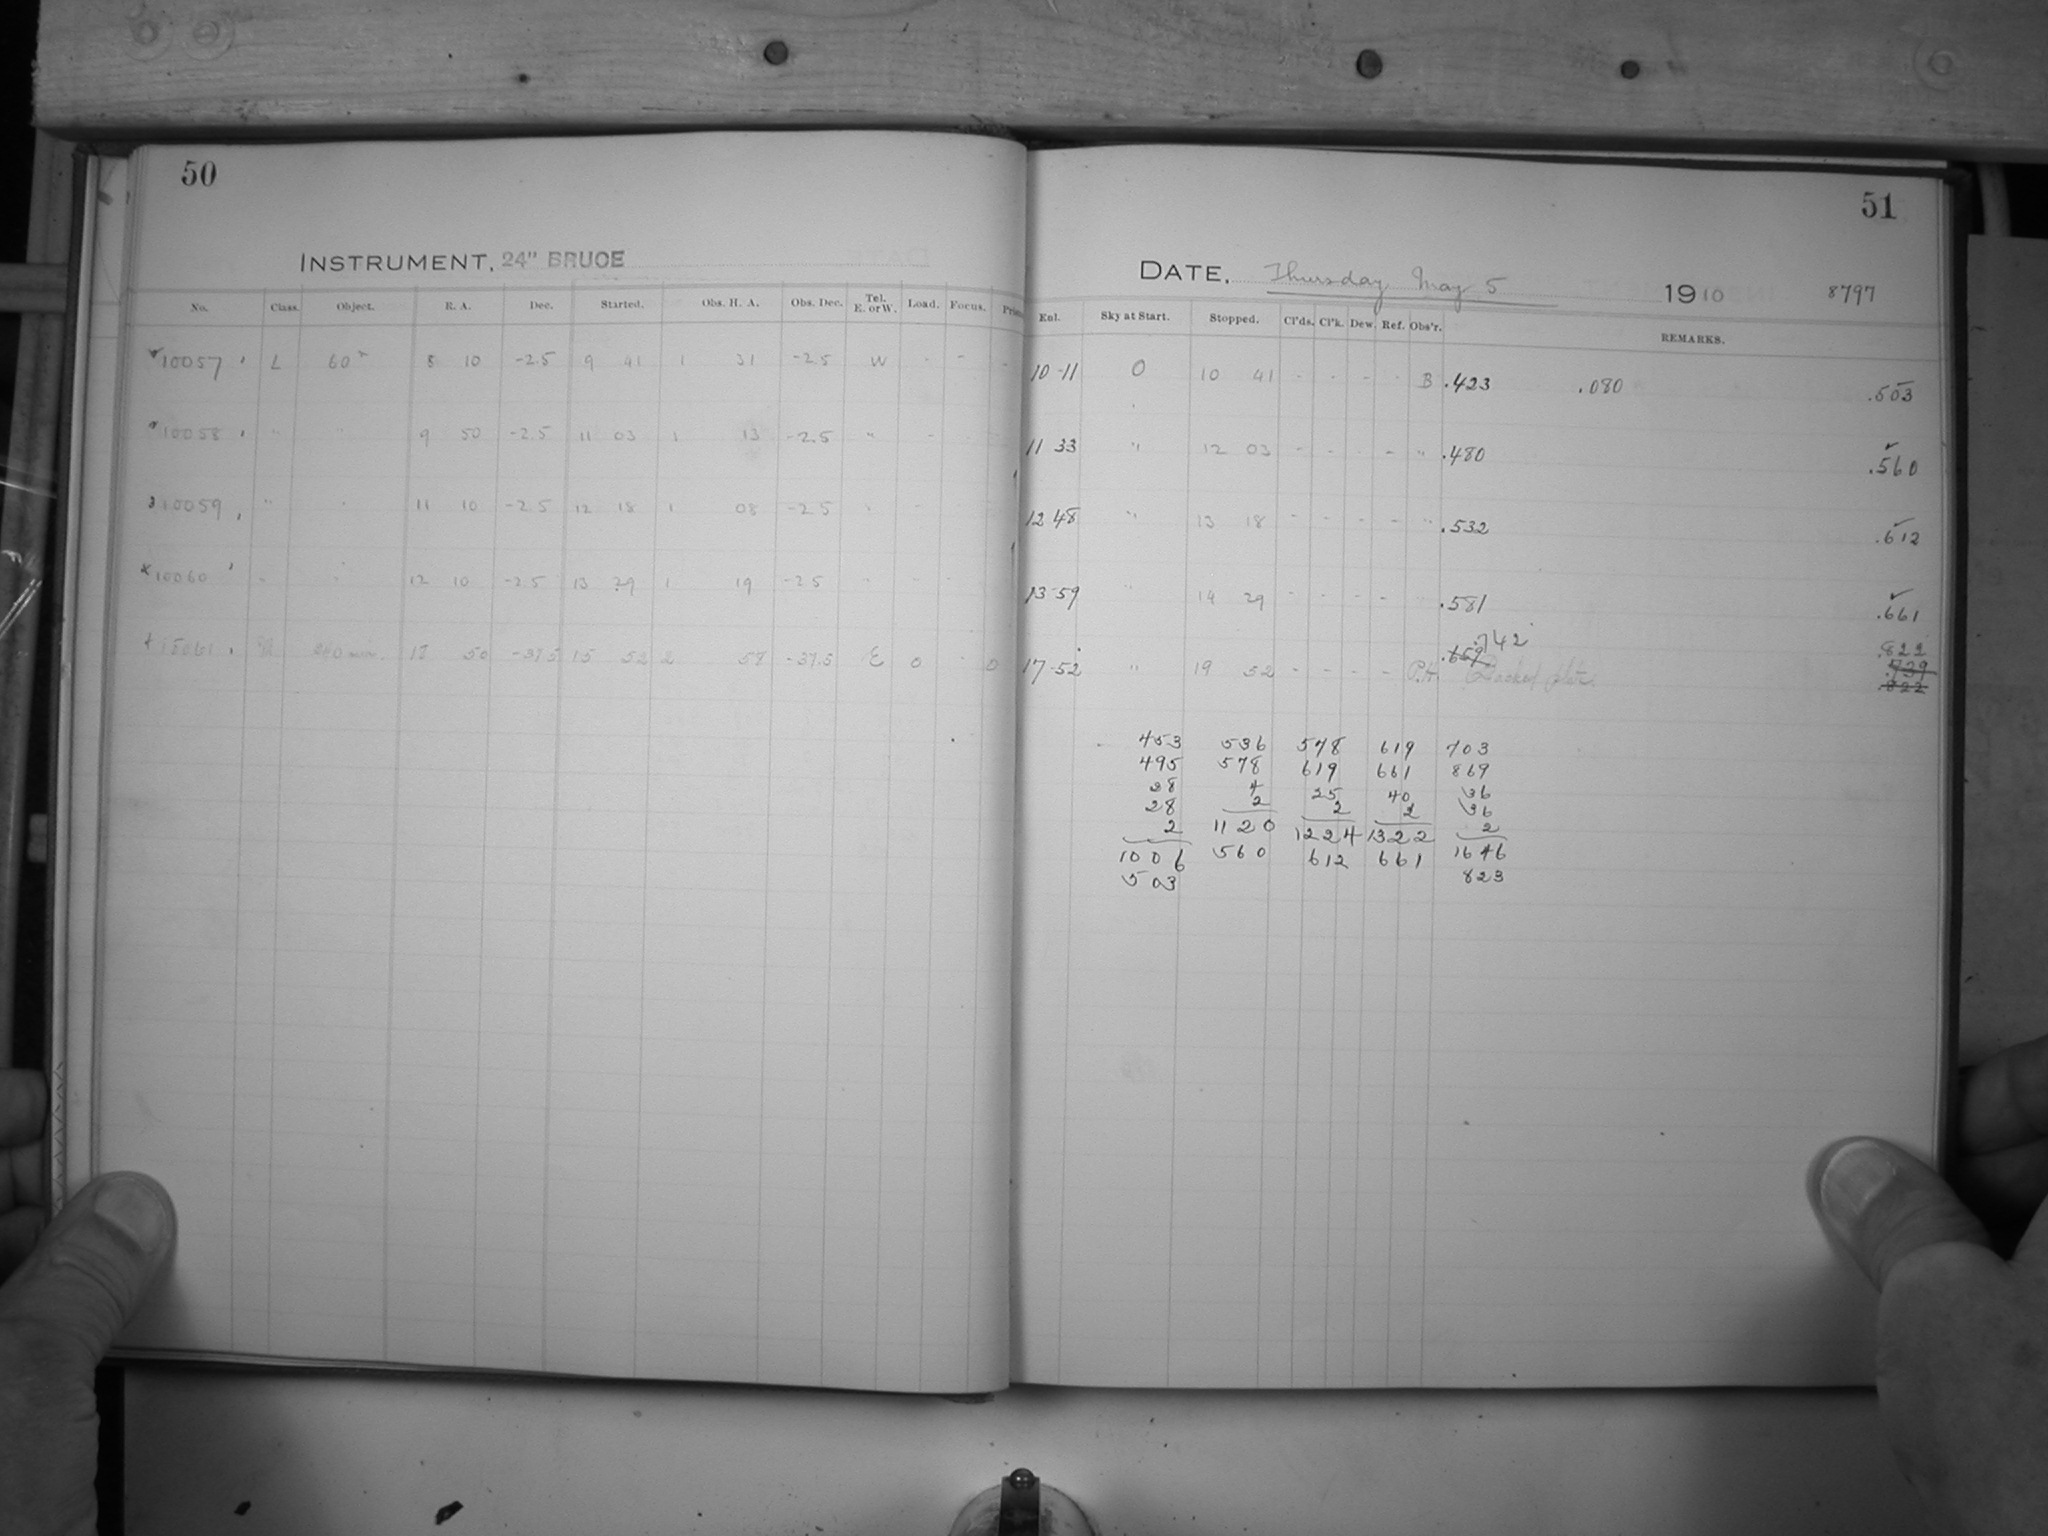 50
51
INSTRUMENT, 24" BRUCE
DATE, Thursday May 5 1910 8797
No. Class. Object. R. A. Dec. Started. Obs. H. A. Obs. Dec. Tel. E. or W. Load. Focus.
Enl. Sky at Start. Stopped. Cl'ds. Cl'k. Dew. Ref. Obs'r. REMARKS.
10057 L 60m 8 10 -2.5 9 41 1 31 -2.5 W - - - 10-11 0 10 41 - - - - B .423 .080 .503
10058 " " 9 50 -2.5 11 03 1 13 -2.5 " - 11 33 " 12 03 - - - " .480 .560
10059 " " 11 10 -2.5 12 18 1 08 -2.5 " - 12 48 " 13 18 - - - - " .532 .612
10060 " " 12 10 -2.5 13 29 1 19 -2.5 " - - 13-59 " 14 29 - - - - .581 .661
240 min. 18 50 -37.5 15 52 2 58 -37.5 E 0 0 17-52 " 19 52 - - - - P.H. .659 .742 Backed plate. .822 .739 .822
453 536 578 619 703
495 578 619 661 869
28 4 25 40 36
28 2 2 2 36
2 1120 1224 1322 2
1006 560 612 661 1646
503 823